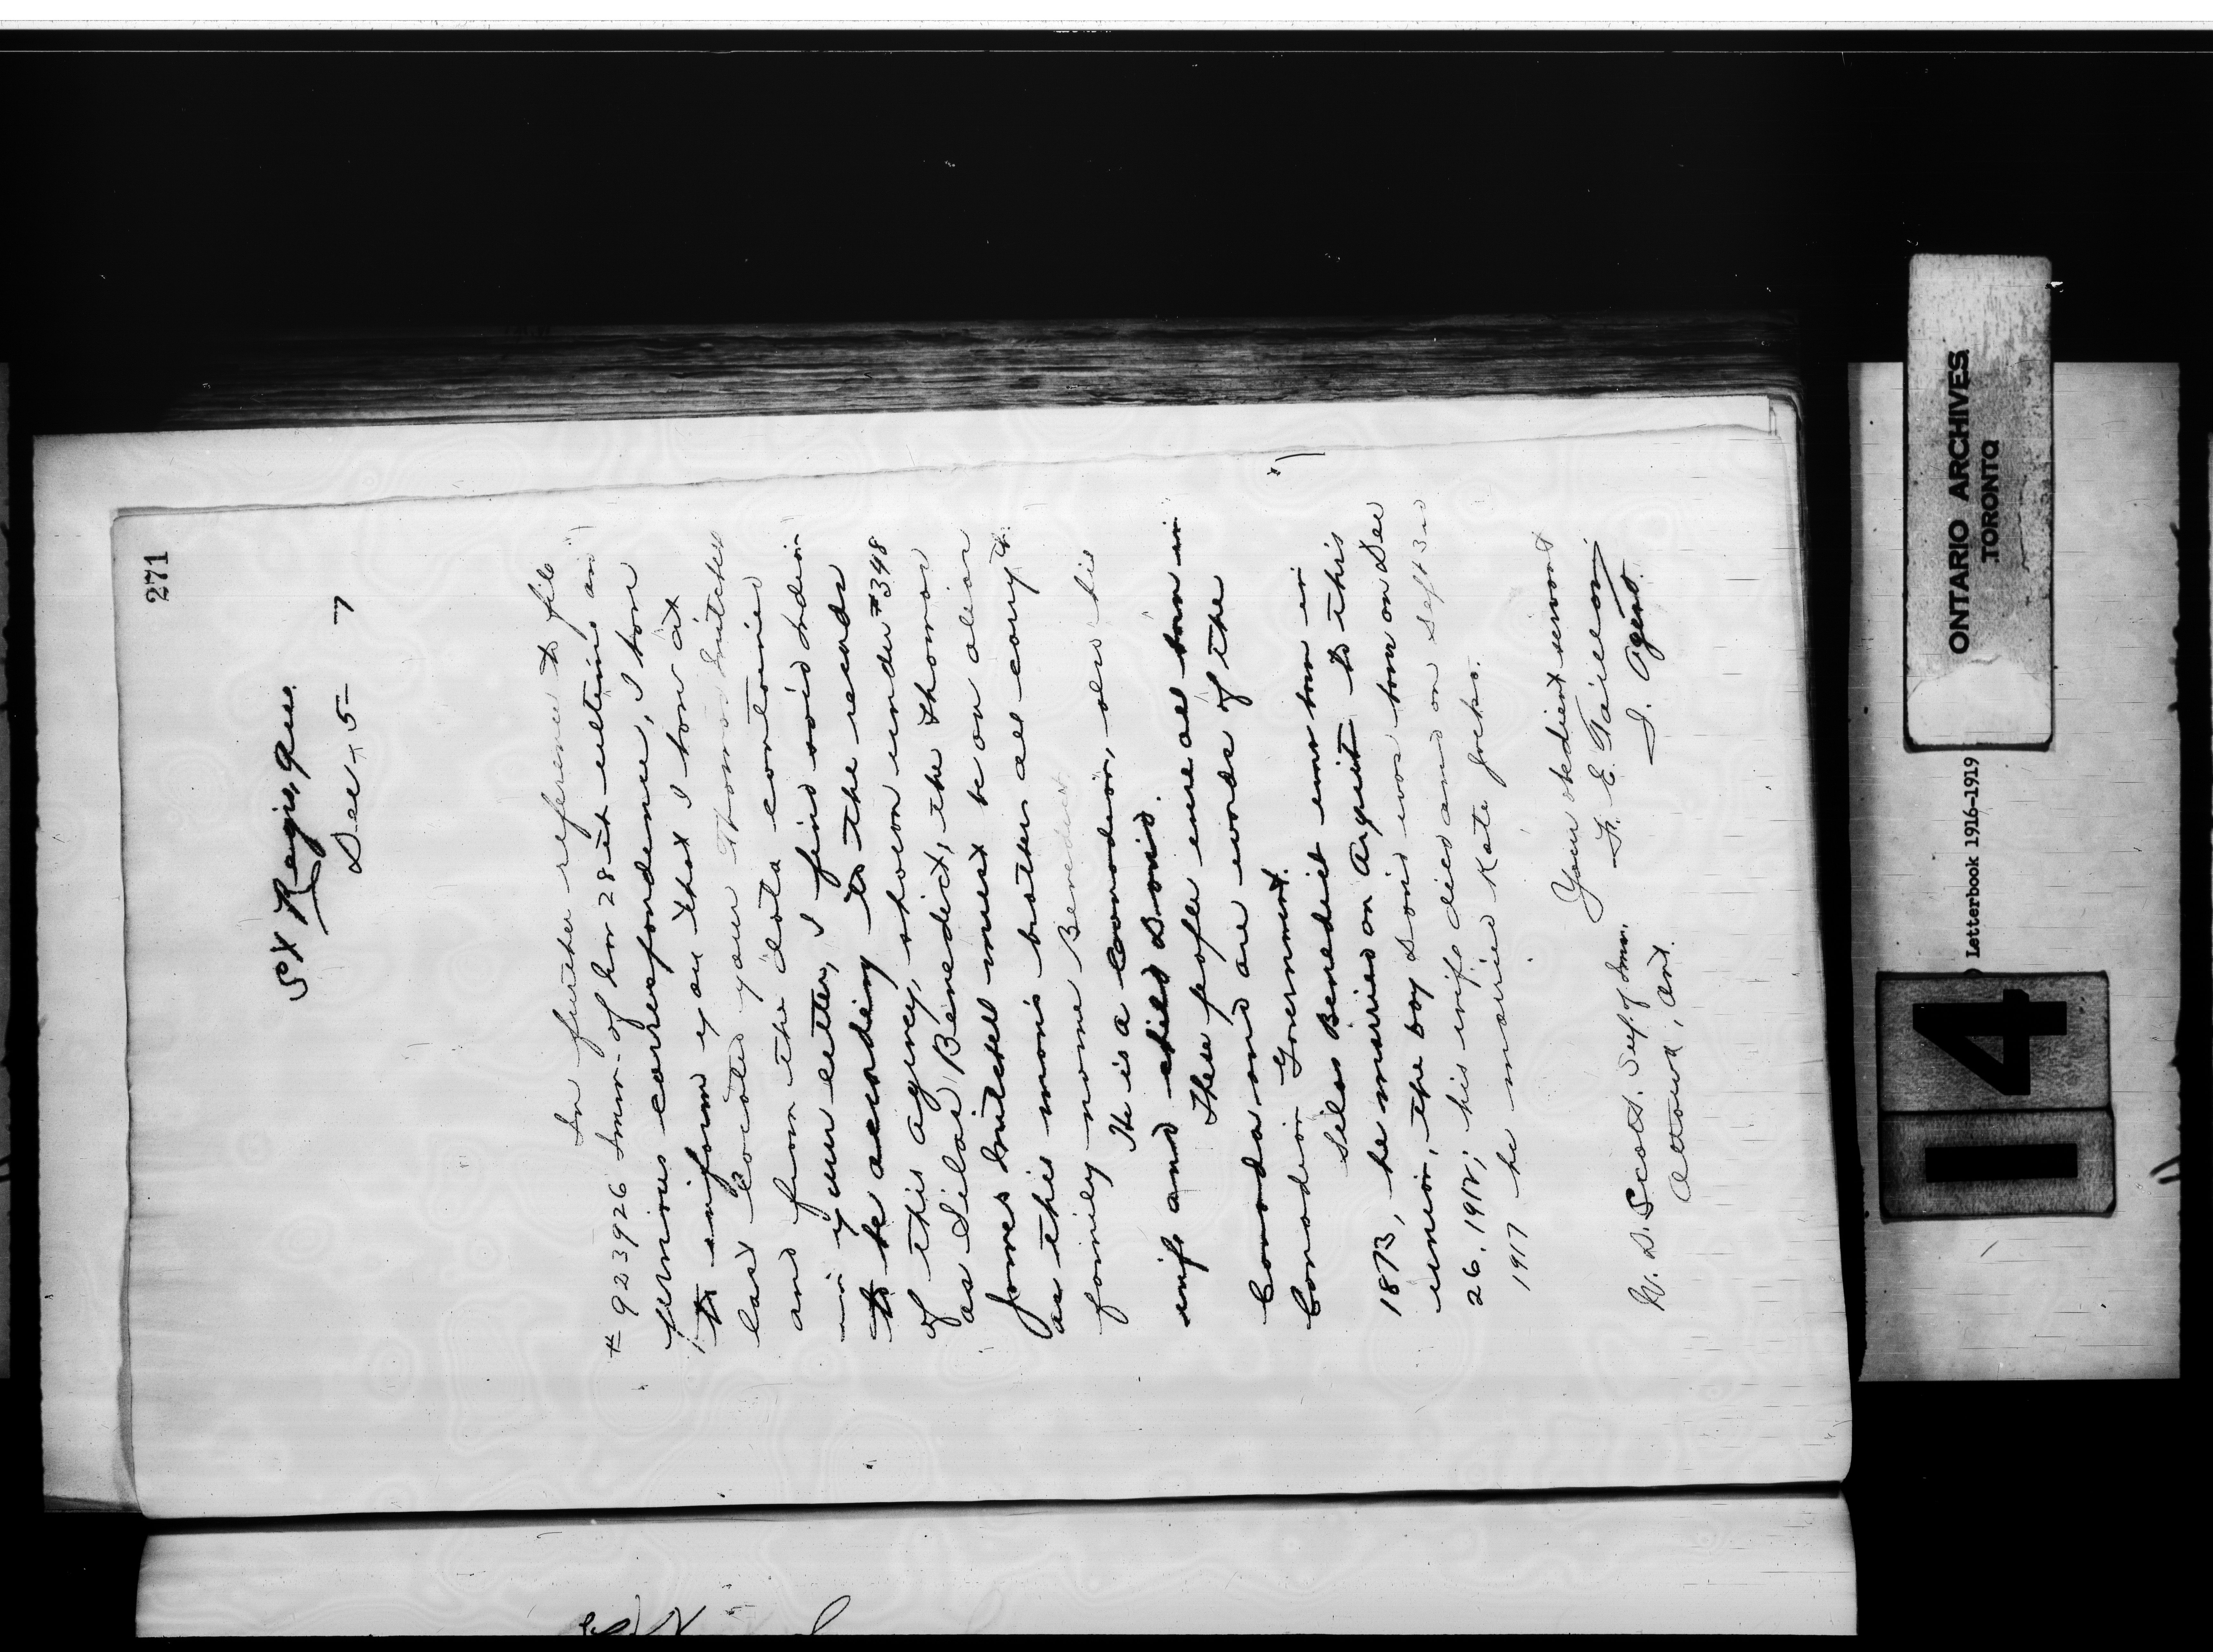 271
St Regis, Que.
Dec 5 7
In further reference to file
# 923926 Imm. of Nov 28th ultimo and
previous correspondence, I have
to inform you that I have at
last located your Thomas Mitchell
and from the data contained
in your letter, I find said Indian
to be according to the records
of this agency, shown under #398
as Silas Benedict, the Thomas
James Mitchell must be an alias
as this man's brothers all carry the
family name Benedict.
He is a Canadian, also his
wife and child David.
These people were all born in
Canada and are wards of the
Canadian Government.
Silas Benedict was born in
1873, he married on August to this
union, the boy David was born on Dec
26, 1912; his wife died and on Sept 3rd
1917 he married Kate Jocko.
Your obedient servant
F. E. Taillon
I. Agent.
W. D. Scott. Sup. of Imm.
Ottawa, Ont.
ONTARIO ARCHIVES
TORONTO
Letterbook 1916-1919
14